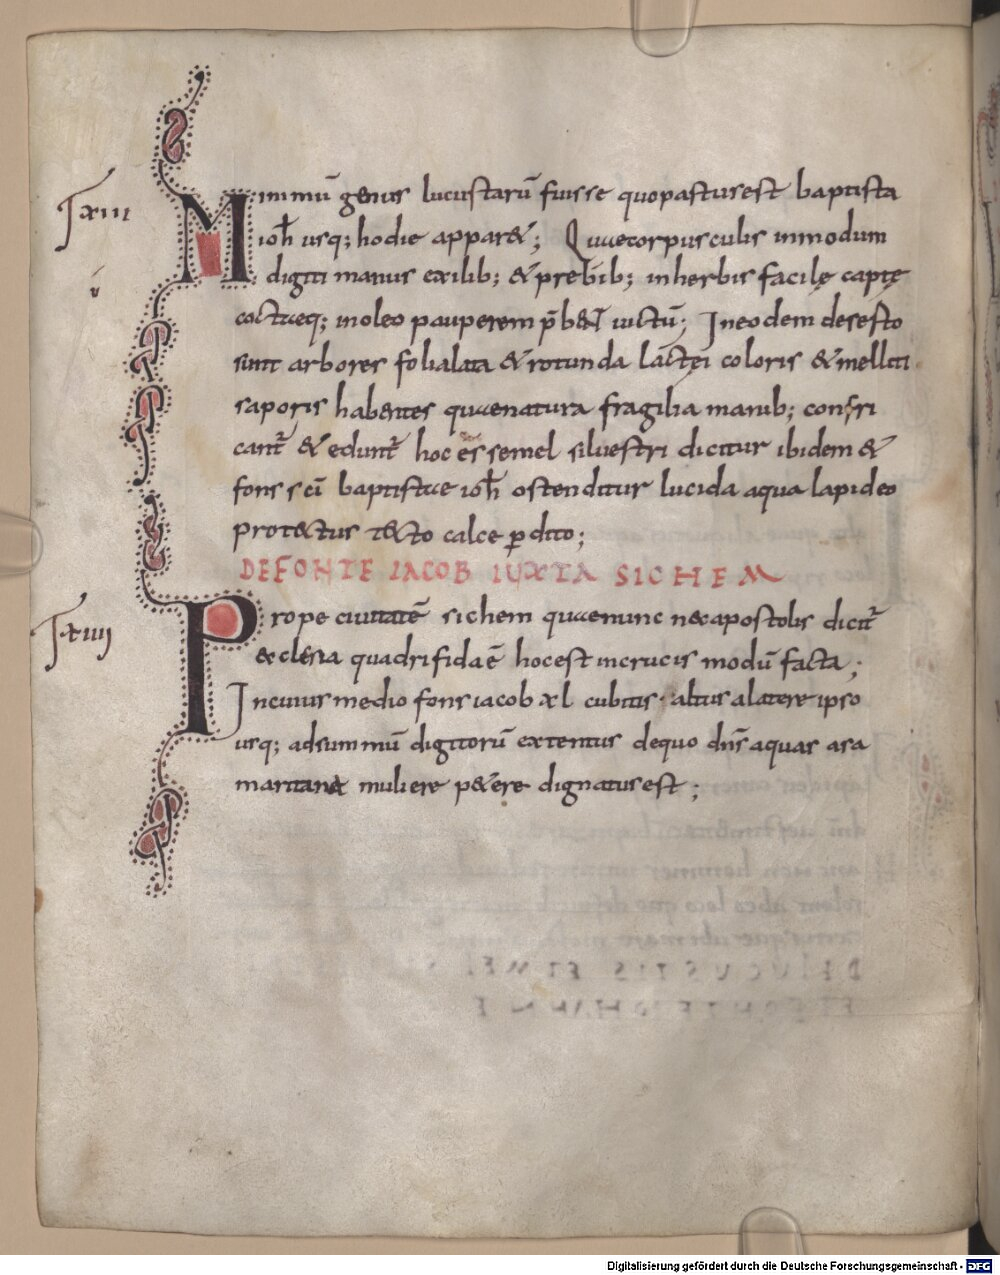 T xiii
Minimū genus lucustarū fuisse quo pastus est baptista
ioħ usq; hodie apparet; Quae corpusculis in modum
digiti manus exilib; & preb̄ib; in herbis facilę captę
coctaeq; in oleo pauperem p̄bent uictū; In eodem deserto
sunt arbores folia lata & rotunda lactei coloris & melliti
saporis habentes quae natura fragilia manib; confri
cant̄ & edunt̄ hoc ēs semel siluestri dicitur ibidem &
fons sc̄i baptistae ioħ ostenditur lucida aqua lapideo
protectus tecto calce p dito;
DE FONTE IACOB IUXTA SICHEM
T xiiii
Prope ciuitatē sichem quae nunc neapostolis dicit̄
ecclesia quadrifida ē hoc est in crucis modū facta;
In cuius medio fons iacob xl cubitis altus a latere ipso
usq; ad summū digitorū extentus de quo dn̄s aquas a sa
maritana muliere petere dignatus est;
Digitalisierung gefördert durch die Deutsche Forschungsgemeinschaft - DFG